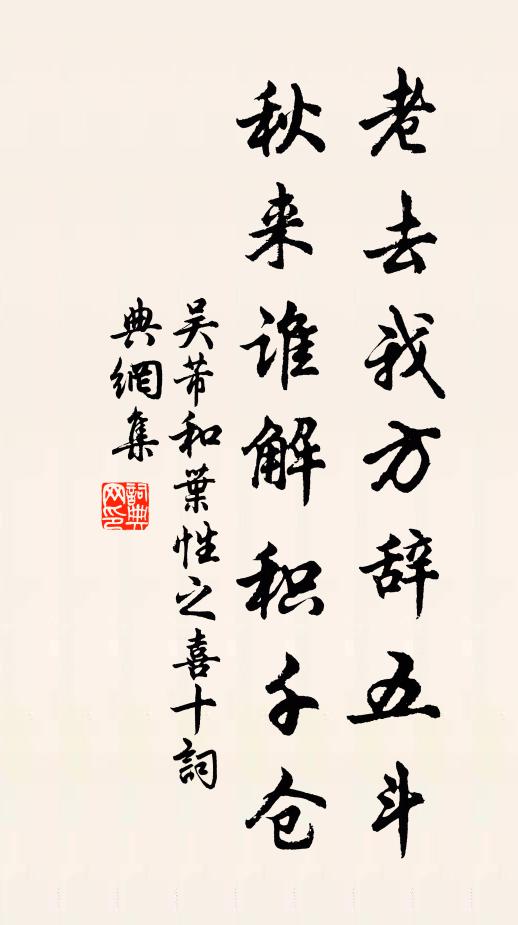 老去我方辞五斗
秋来谁解积千仓
吴芾和葉性之喜十詞
典網集
詞典
网印